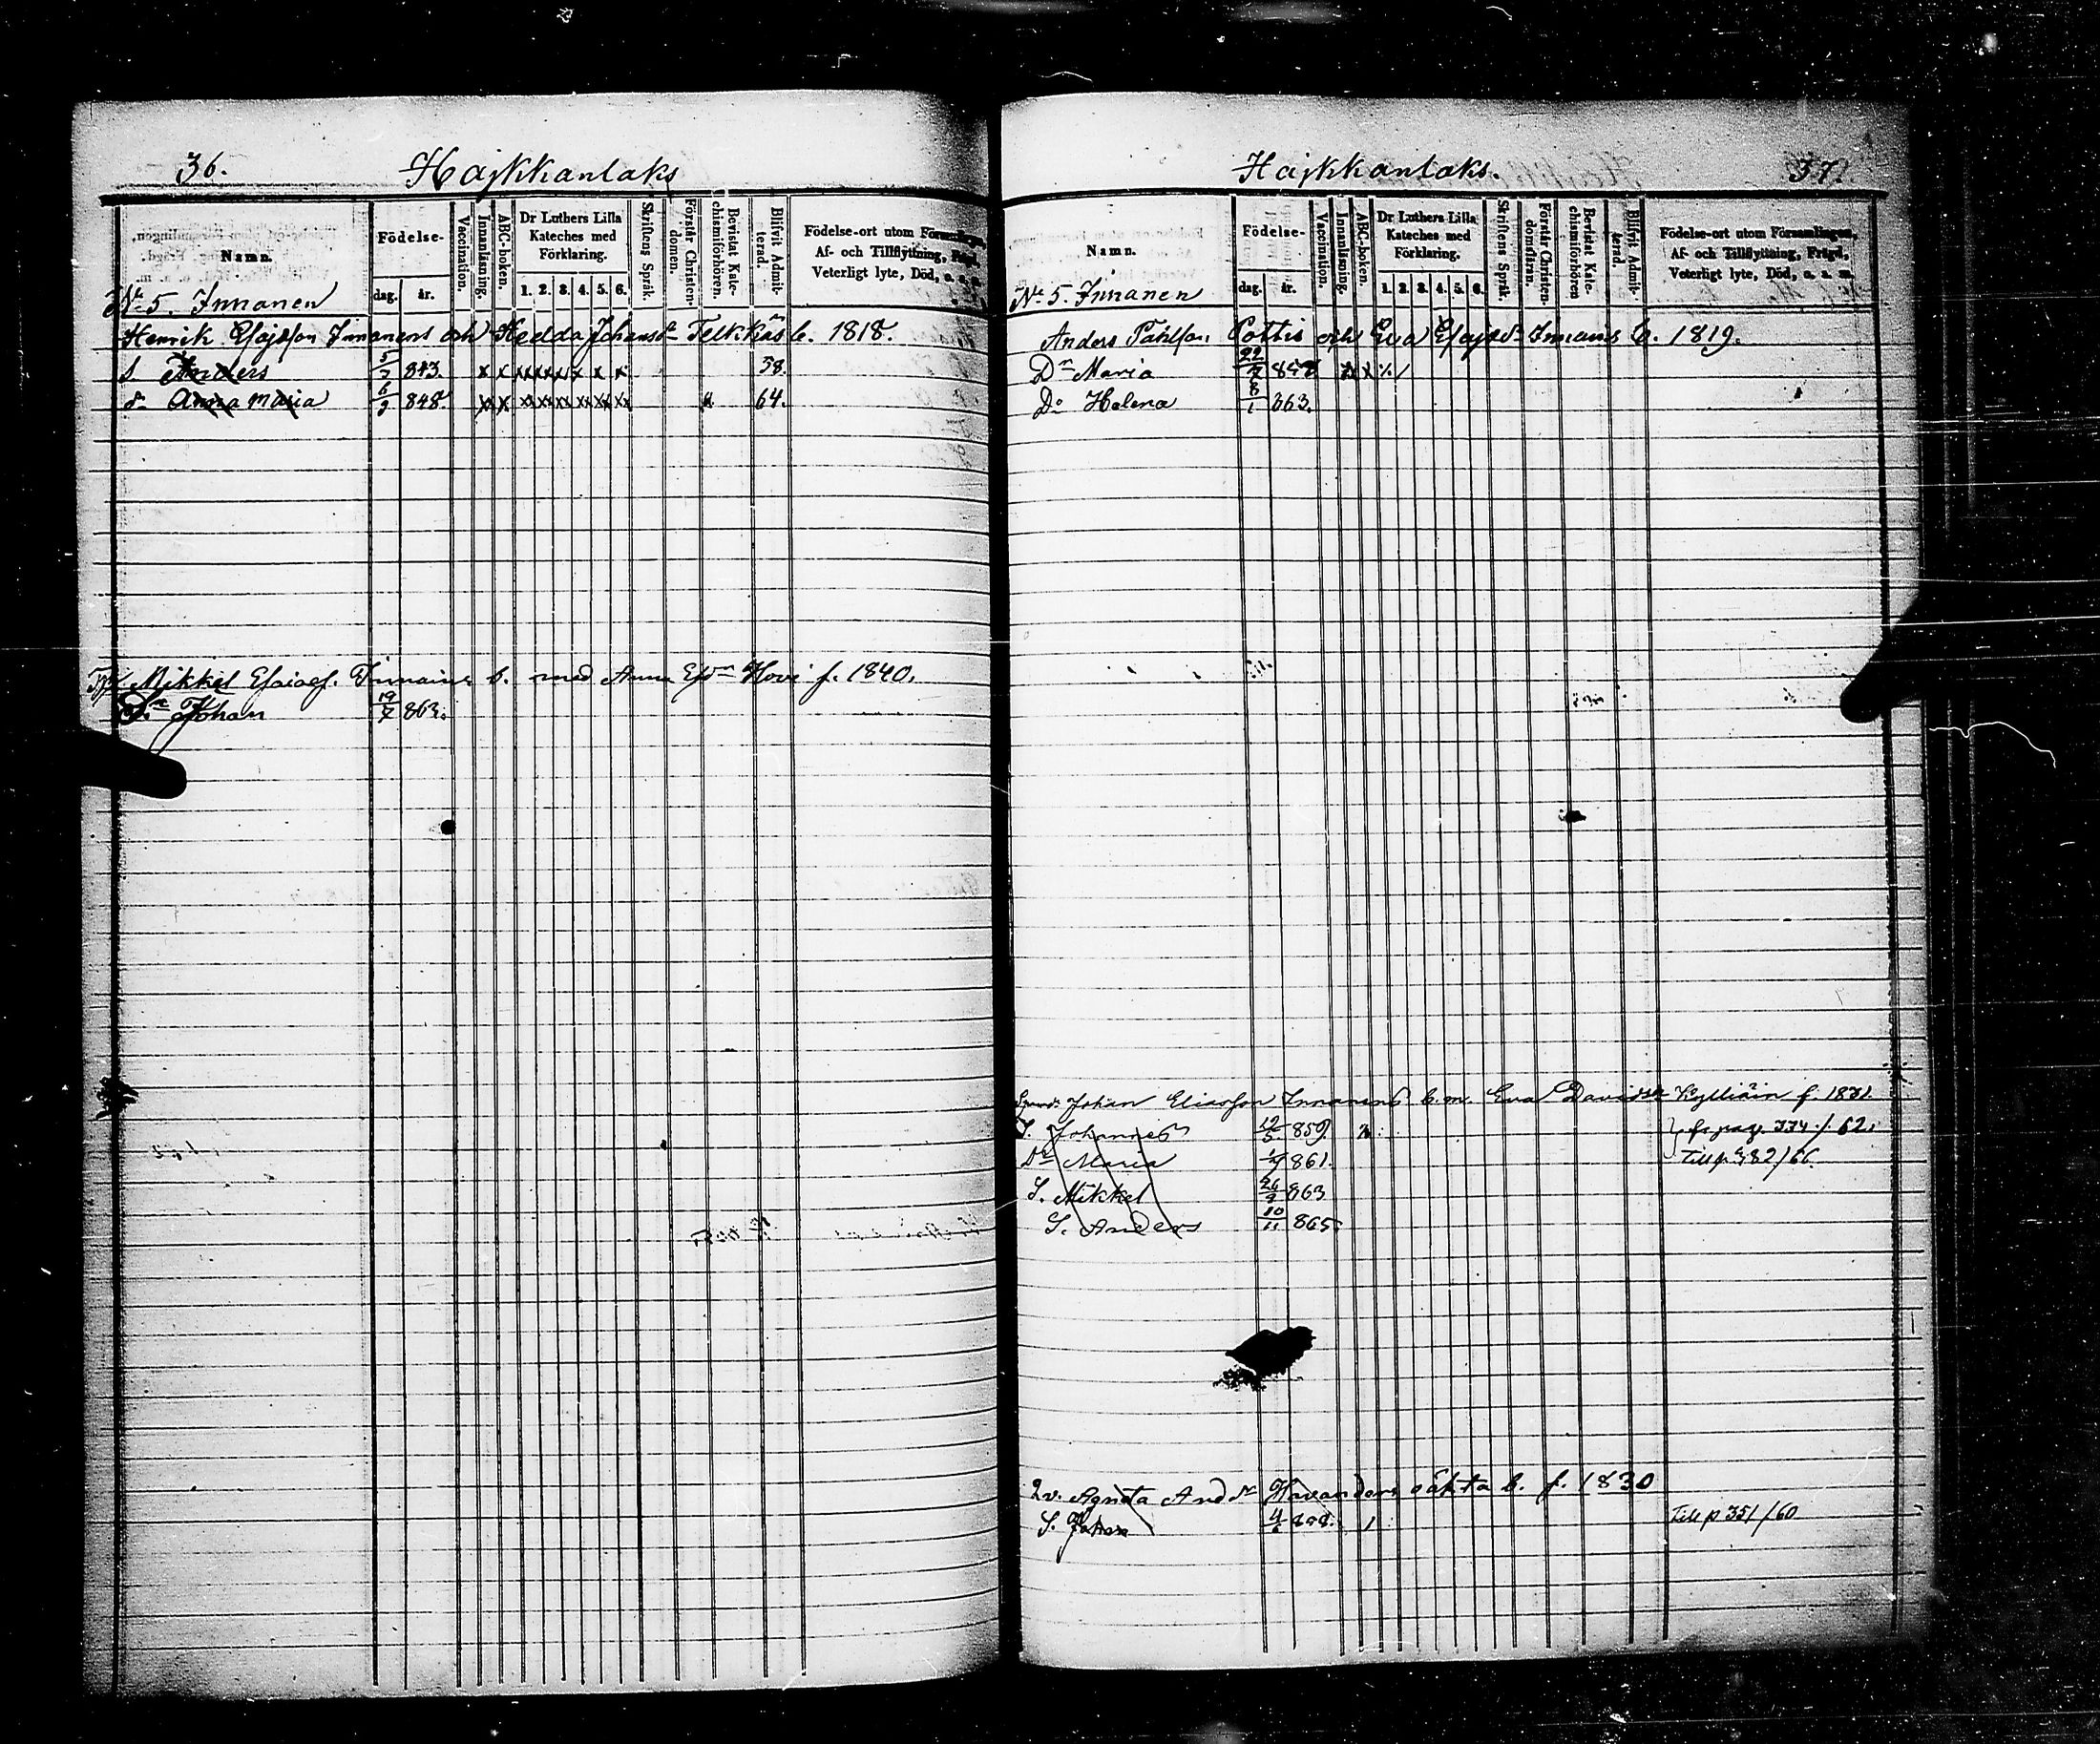 36.
Hajkkanlaks
Namn.
Födelse-
dag. år.
Vaccination.
Innanläsning.
ABC-boken.
Dr Luthers Lilla Kateches med Förklaring.
1. 2. 3. 4. 5. 6.
Skriftens Språk.
Förstår Christendomen.
Bevistat Katechismiförhören.
Blifvit Admitterad.
Födelse-ort utom Församlingen,
Af- och Tillflyttning, Frägd,
Veterligt lyte, Död, o. s. m.
N:o 5. Innanen
Henrik Esajsson Innanens och Hedda Johansd:r Telkkäs b. 1818.
S. Anders 5/7 843. x x x x x x x x 58.
d:r Anna Maria 6/9 848. 64.
Mikkel Esaias. Innains b. med Anna Hovi f. 1840.
Johan 19/7 863.
37.
Hajkkanlaks.
Namn.
Födelse-
dag. år.
Vaccination.
Innanläsning.
ABC-boken.
Dr Luthers Lilla Kateches med Förklaring.
1. 2. 3. 4. 5. 6.
Skriftens Språk.
Förstår Christendomsläran.
Bevistat Katechismiförhören
Blifvit Admitterad.
Födelse-ort utom Församlingen,
Af- och Tillflyttning, Frägd,
Veterligt lyte, Död, o. s. m.
N:o 5. Innanen
Anders Påhlson Pottis och Eva Esajsd:r Innans b. 1819.
D:r Maria
D:o Helena 8/1 863.
Johan Eliasson Innanens b. m. Eva Davidsd:r Kylliäin f. 1831.
S. Johannes 12/5 859. fr pag. 334/62.
D:r Maria 861. till p 382/66.
S. Mikkel 26/9 863
S. Anders 10/11 865.
Qv. Agneta And.d:r oäkta b. f. 1830
S. Johan 4/6 Till p 351/60